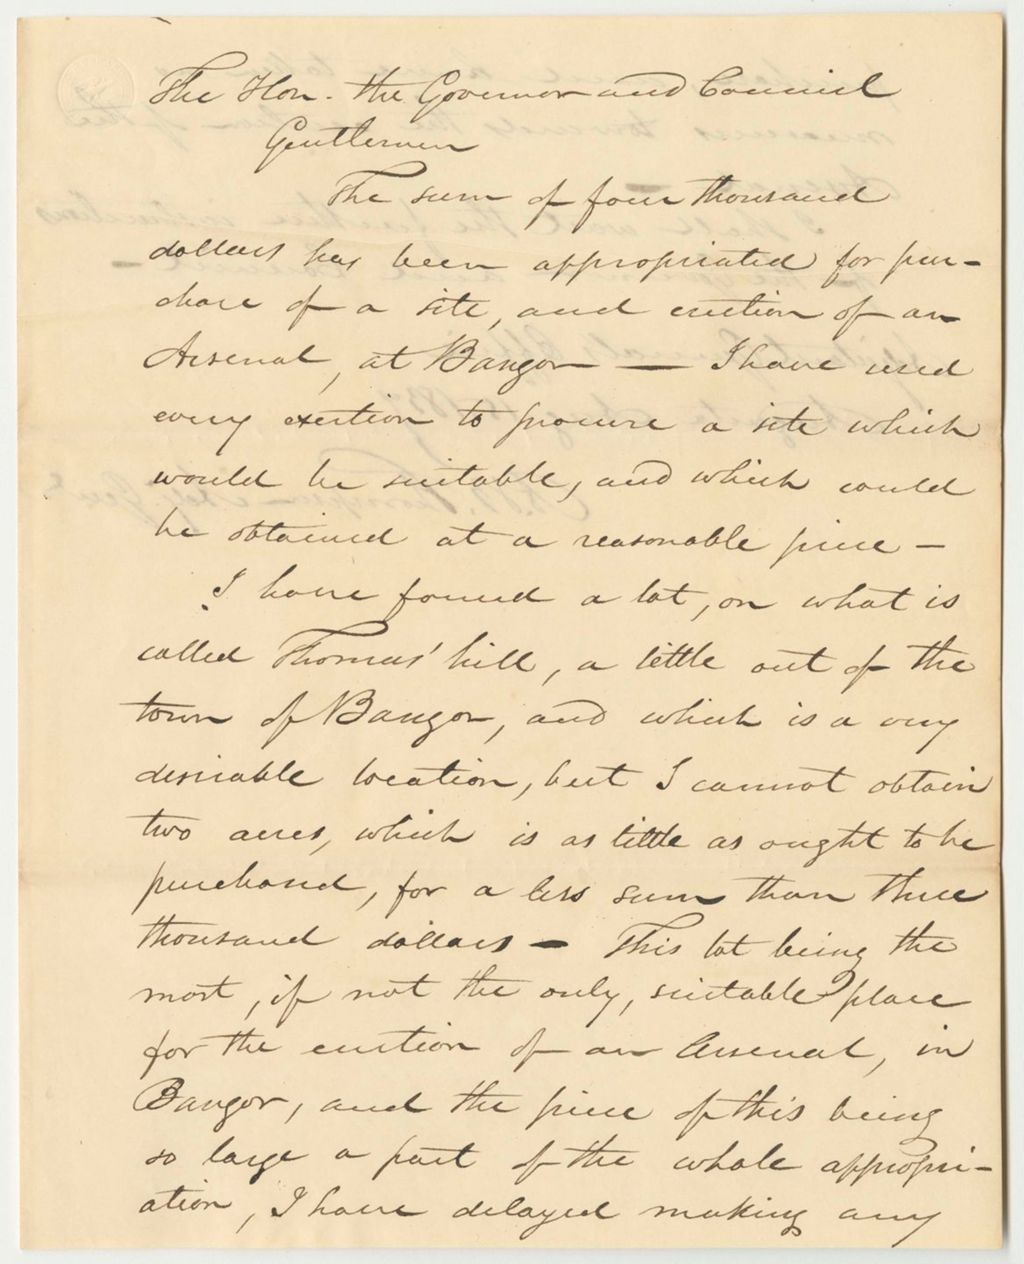 The Hon. the Governor and Council
Gentlemen
The sum of four thousand
dollars has been appropriated for pur-
chase of a site, and erection of an
Arsenal, at Bangor — I have used
every exertion to procure a site which
would be suitable, and which could
be obtained at a reasonable price —
I have found a lot, on what is
called Thomas' hill, a little out of the
town of Bangor, and which is a very
desirable location, but I cannot obtain
two acres, which is as little as ought to be
purchased, for a less sum than three
thousand dollars — This lot being the
most, if not the only, suitable place
for the erection of an Arsenal, in
Bangor, and the price of this being
so large a part of the whole appropri-
ation, I have delayed making any